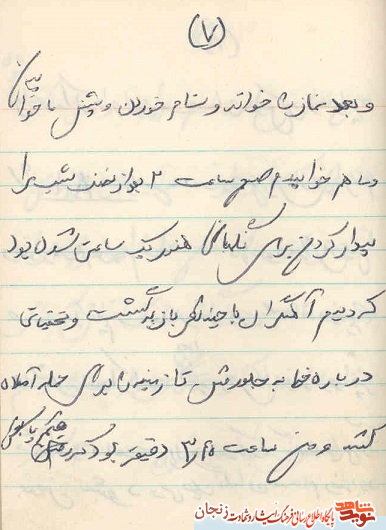 (۷)
و بعد نماز را خواند و شام خوردن و پیش ما خوابید
و ما هم خوابیدیم صبح ساعت ۲ بعد از نصف شب مرا
بیدار کردن برای نگهبانی هنوز یک ساعتی نشده بود
که دیدیم آ ژنرال با چند نفر باز برگشت و تحقیقاتی
درباره خط به جلو رفتن تا زمینه را برای حمله آماده
کنند و من ساعت ۳/۴۵ دقیقه بود که
شاهد نوید
پایگاه اطلاع رسانی فرهنگ ایثار و شهادت زنجان